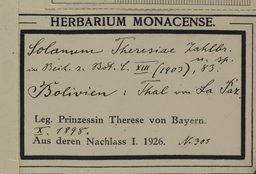 HERBARIUM MONACENSE.
Solanum Theresiae Zahlbr.
n. sp.
in Beih. z. Bot. C. XIII (1903), 83.
Bolivien : Thal von La Paz.
Leg. Prinzessin Therese von Bayern.
X. 1898.
Aus deren Nachlass I. 1926. No. 303